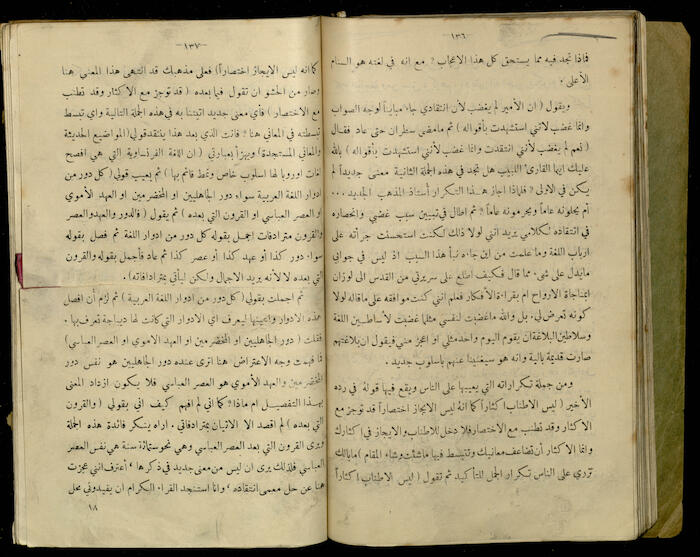 —١٣٦—
فماذا تجد فيه مما يستحق كل هذا الاعجاب ? مع انه في لغته هو السنام
الاعلى
ويقول ( ان الأمير لم يغضب لأن انتقادي جاء مبايناً لوجه الصواب
وانما غضب لانني استشهدت بأقواله ) ثم مامضى سطران حتى عاد فقال
( نعم لم يغضب لأنني انتقدت وانما غضب لأنني استشهدت بأقواله ) بالله
عليك ايها القارئ اللبيب هل تجد في هذه الجملة الثانية معنى جديداً لم
يكن في الاولى ? فلماذا اجاز هذا التكرار أستاذ المذهب الجديد ...
أم يحلونه عاماً ويحرمونه عاماً ? ثم اطال في تبيين سبب غضبي وانحصاره
في انتقاده لكلامي يريد انني لولا ذلك لكنت استحسنت جرأته على
ارباب اللغة وما علمت من اين جاءه نبأ هذا السبب اذ ليس في جوابي
مايدل على شيء مما قال فكيف اطلع على سريرتي من القدس الى لوزان
ابمناجاة الارواح ام بقراءة الأفكار فعلم انني كنت موافقه على ماقاله لولا
كونه تعرض لي. بل والله ماغضبت لنفسي مثلما غضبت لأساطين اللغة
وسلاطين البلاغة أن يقوم اليوم واحد مثلي او اعجز مني فيقول ان بلاغتهم
صارت قديمة بالية وانه هو سيغنينا عنهم باسلوب جديد .
ومن جملة تكراراته التي يعيبها على الناس ويقع فيها قوله في رده
الأخير ( ليس الاطناب اكثاراً كما انه ليس الايجاز اختصاراً قد توجز مع
الاكثار وقد تطنب مع الاختصار فلا دخل للاطناب والايجاز في اكثارك
وانما الاكثار أن تضاعف معانيك وتتبسط فيها ماشئت وشاء المقام ) مابالك
تزري على الناس تكرار الجمل للتأكيد ثم تقول ( ليس الاطناب اكثاراً
—١٣٧—
كما انه ليس الايجاز اختصاراً) فعلى مذهبك قد انتهى هذا المعنى هنا
وصار من الحشو ان تقول فيما بعده ( قد توجز مع الاكثار وقد تطنب
مع الاختصار ) فأي معنى جديد اتيتنا به في هذه الجملة التالية واي تبسط
تبسطته في المعاني هنا ? فانت الذي بعد هذا ينتقد قولي ( المواضيع الحديثة
والمعاني المستجدة) ويهزأ بعبارتي ( ان اللغة الفرنساوية التي هي افصح
لغات اوروبا لها اسلوب خاص ونمط قائم بها ) ثم يعيب قولي ( كل دور من
ادوار اللغة العربية سواء دور الجاهليين او المخضرمين او العهد الأموي
او العصر العباسي او القرون التي بعده ) ثم يقول ( فالدور والعهد والعصر
والقرون مترادفات اجمل بقوله كل دور من ادوار اللغة ثم فصل بقوله
سواء دور كذا أو عهد كذا أو عصر كذا ثم عاد فأجمل بقوله والقرون
التي بعده لا لأنه يريد الاجمال ولكن ليأتي بمترادفاته ) .
ثم اجملت بقولي ( كل دور من ادوار اللغة العربية ) ثم لزم أن افصل
هذه الادوار واعينها ليعرف اي الادوار التي كانت لها ديباجة تعرف بها .
فقلت ( دور الجاهليين او المخضرمين او العهد الاموي او العصر العباسي )
فما فهمت وجه الاعتراض هنا اترى عنده دور الجاهليين هو نفس دور
المخضرمين والعهد الأموي هو العصر العباسي فلا يكون ازداد المعنى
بهذا التفصيل ام ماذا ? كما انني لم افهم كيف اني بقولي ( والقرون
التي بعده ) لم اقصد الا الاتيان بمترادفاتي . اراه ينكر فائدة هذه الجملة
ويرى القرون التي بعد العصر العباسي وهي نحو ستمائة سنة هي نفس العصر
العباسي فلذلك يرى ان ليس من معنى جديد في ذكرها ، أعترف انني عجزت
هنا عن حل معمى انتقاده ، وانا استنجد القراء الكرام ان يفيدوني بحل
١٨